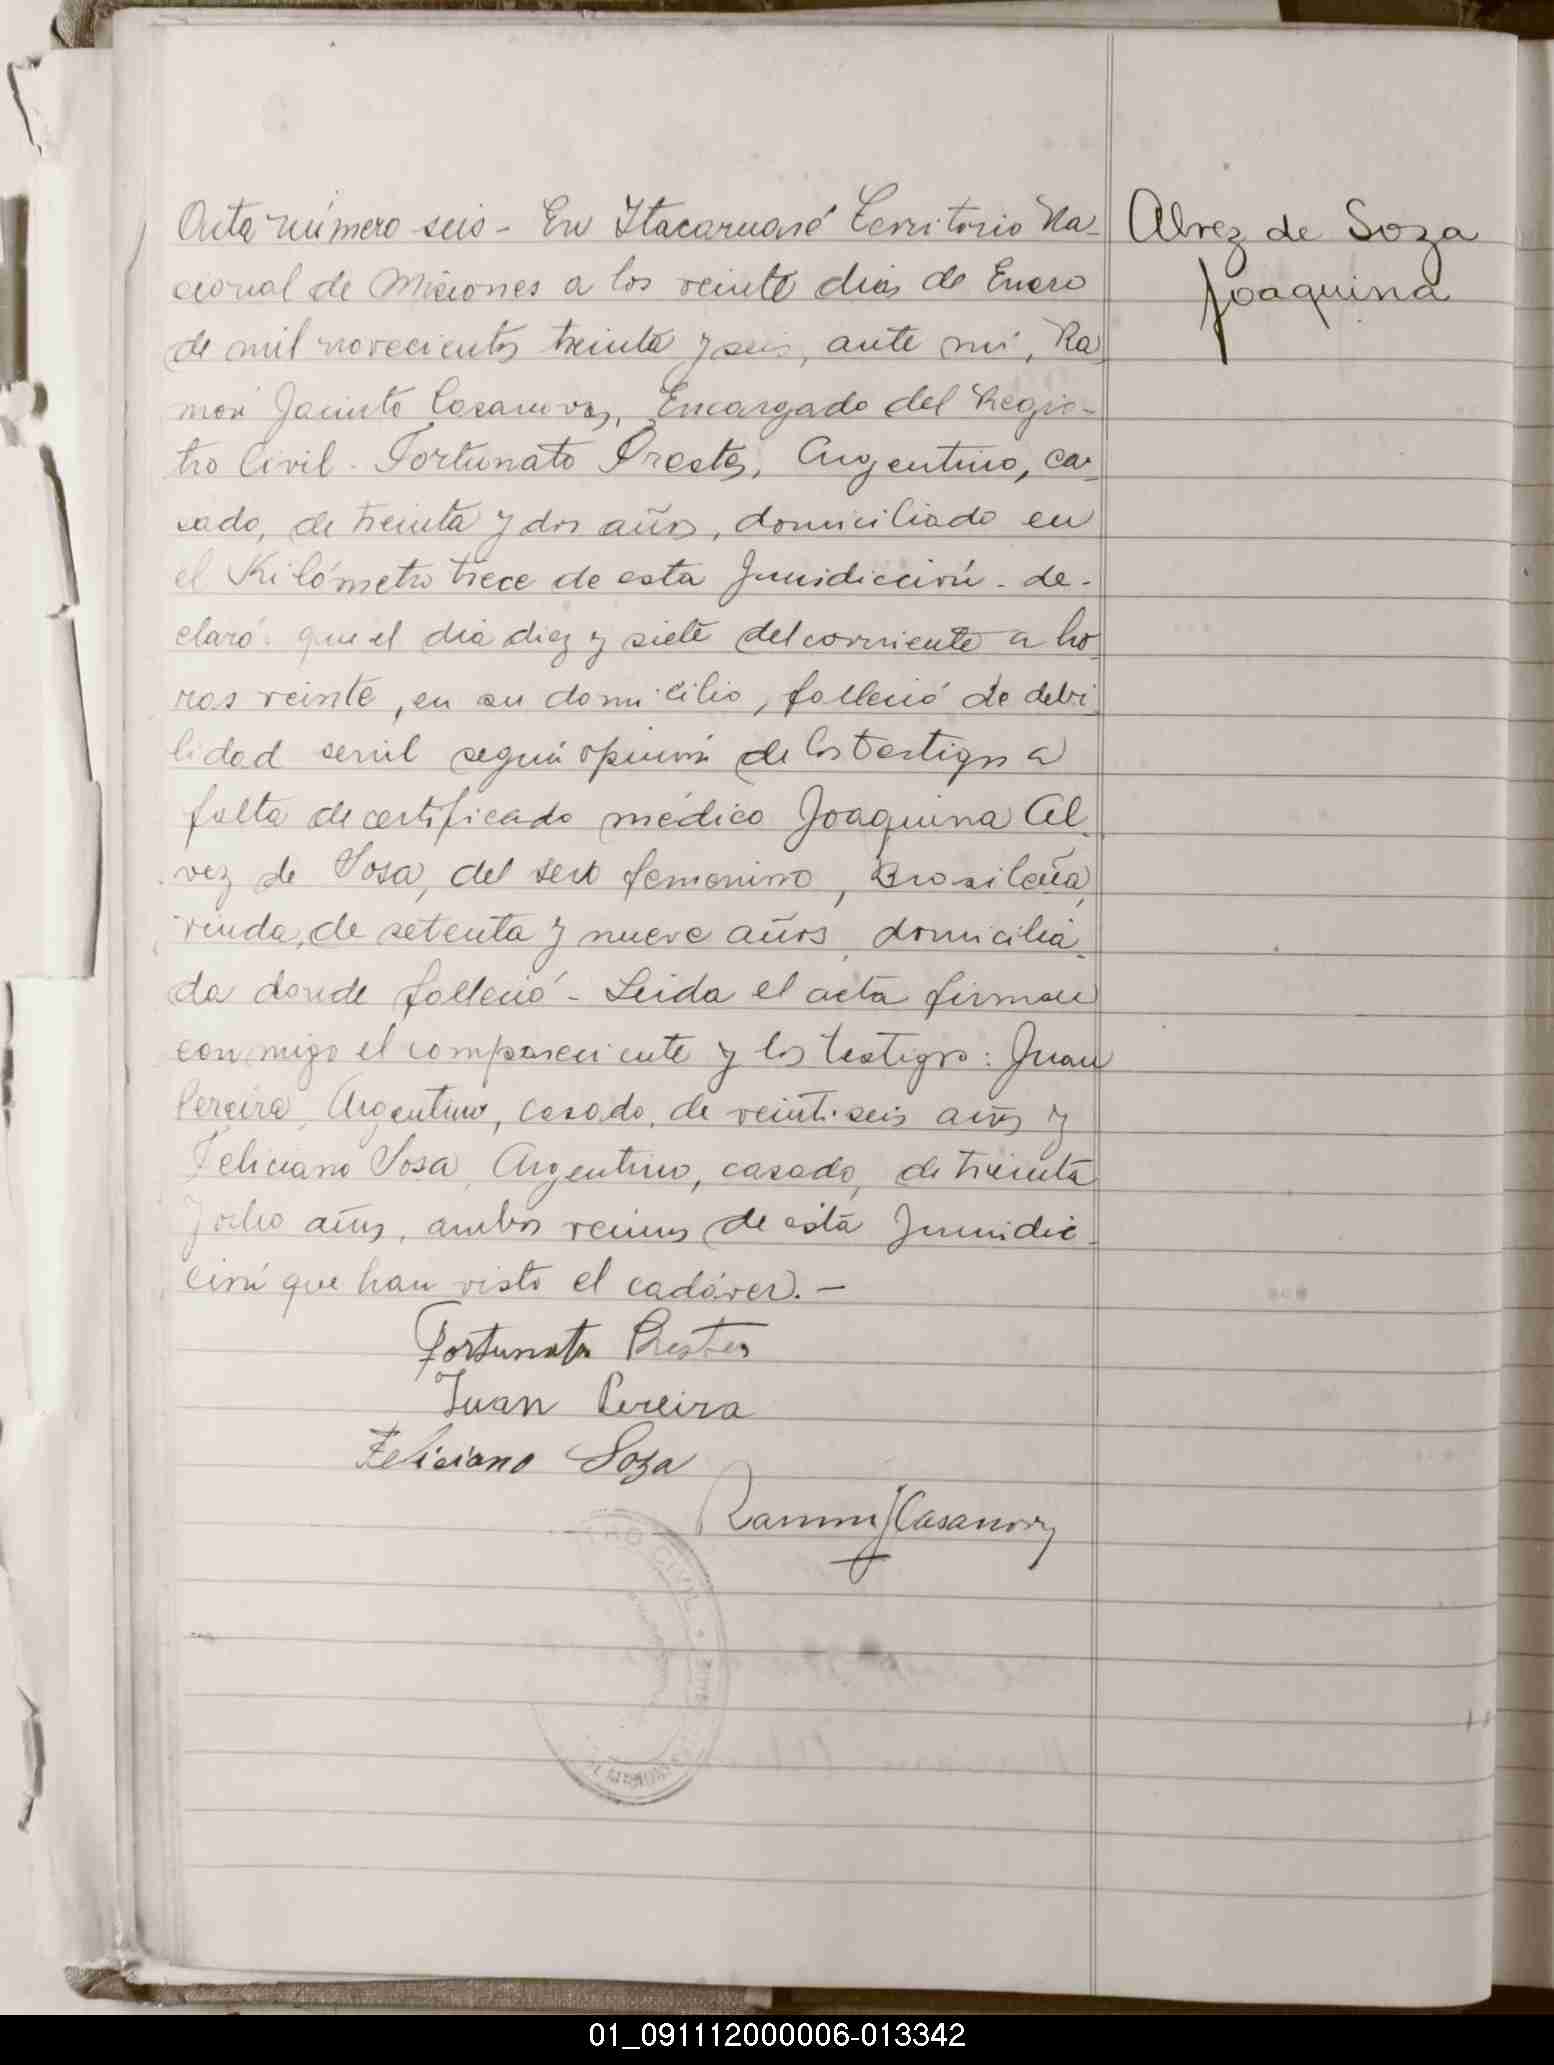 Acta número seis - En Itacaruaré Territorio Na-
cional de Misiones a los veinte dias de Enero
de mil novecientos treinta y seis, ante mi, Ra
món Jacinto Casanova, Encargado del Regis-
tro Civil - Fortunato Prestes, Argentino, ca-
sado, de treinta y dos años, domiciliado en
el Kilómetro trece de esta Jurisdicción - de-
claró: que el dia diez y siete del corriente a ho
ras veinte, en su domicilio, falleció de debi
lidad senil según opinión de los testigos a
falta de certificado médico Joaquina Al
vez de Sosa, del sexo femenino, Brasileña,
viuda, de setenta y nueve años, domicilia
da donde falleció - Leida el acta firman
conmigo el compareciente y los testigos: Juan
Pereira, Argentino, casado, de veintiseis años y
Feliciano Sosa, Argentino, casado, de treinta
y ocho años, ambos vecinos de esta Jurisdic-
ción que han visto el cadáver. -
Fortunato Prestes
Juan Pereira
Feliciano Soza
Ramón J Casanova
Alvez de Soza
Joaquina
CIVIL
01_091112000006-013342